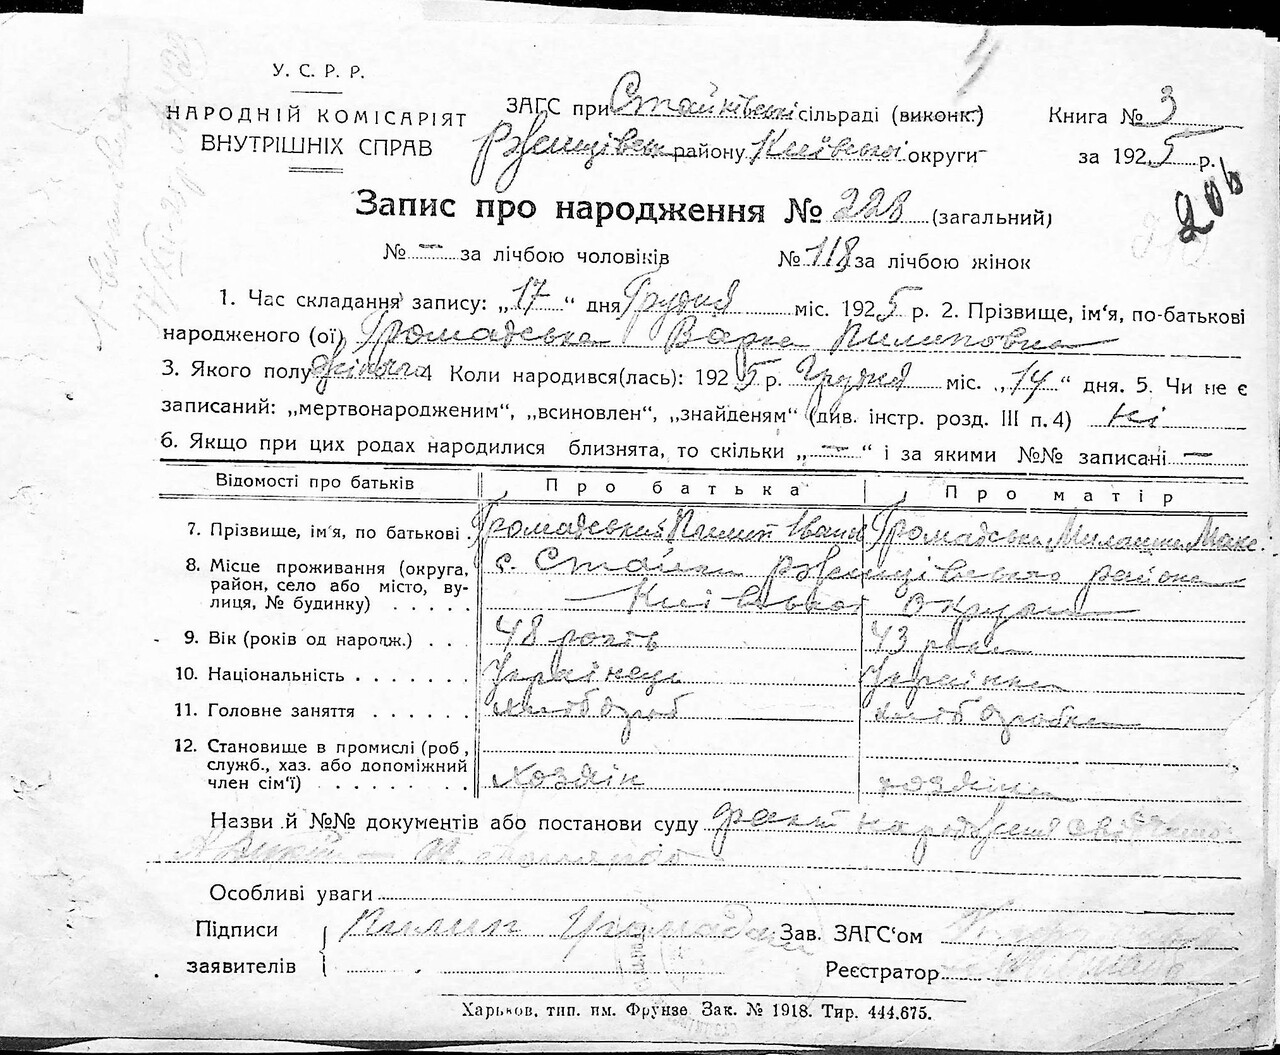 У. С. Р. Р.
НАРОДНІЙ КОМІСАРІЯТ
ВНУТРІШНІХ СПРАВ
ЗАГС при Стайківські сільраді (виконк.)
Ржищівськ району Київської округи
Книга № 3
за 1925 р.
206
Запис про народження № 228 (загальний)
№ — за лічбою чоловіків № 118 за лічбою жінок
1. Час складання запису: „17“ дня Грудня міс. 1925 р. 2. Прізвище, ім‘я, по-батькові
народженого (ої) Громадська Варка Пилиповна
3. Якого полу жіночого 4 Коли народився(лась): 1925 р. Грудня міс. „14“ дня. 5. Чи не є
записаний: „мертвонародженим“, „всиновлен“, „знайденям“ (див. інстр. розд. III п. 4) ні
6. Якщо при цих родах народилися близнята, то скільки „—“ і за якими №№ записані —
Відомості про батьків Про батька Про матір
7. Прізвище, ім‘я, по батькові . Громадський Пилип Іванов Громадська Макс.
8. Місце проживання (округа, с. Стайки Ржищівського района
район, село або місто, ву-
лиця, № будинку) . . . . . Київської округи
9. Вік (років од народж.) . . . 48 років 43 роки
10. Національність . . . . . . . Українець Українка
11. Головне заняття . . . . . . хлібороб хліборобка
12. Становище в промислі (роб.,
служб., хаз. або допоміжний
член сім‘ї) . . . . . . . . . хозяін хозяйка
Назви й №№ документів або постанови суду факт народження
Особливі уваги
Підписи Пилип Громадський Зав. ЗАГС‘ом
заявителів Реєстратор
Харьков, тип. им. Фрунзе Зак. № 1918. Тир. 444.675.